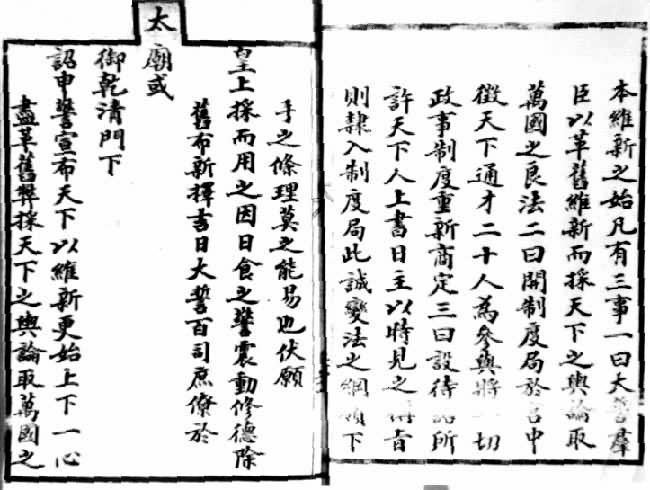 本維新之始凡有三事一曰大誓羣
臣以革舊維新而採天下之輿論取
萬國之良法二曰開制度局於宮中
徵天下通才二十人為參與將一切
政事制度重新商定三曰設待詔所
許天下人上書日主以時見之稱旨
則隸入制度局此誠變法之綱領下
手之條理莫之能易也伏願
皇上採而用之因日食之警震動修德除
舊布新擇吉日大誓百司庶僚於
太廟或
御乾清門下
詔申警宣布天下以維新更始上下一心
盡革舊弊採天下之輿論取萬國之